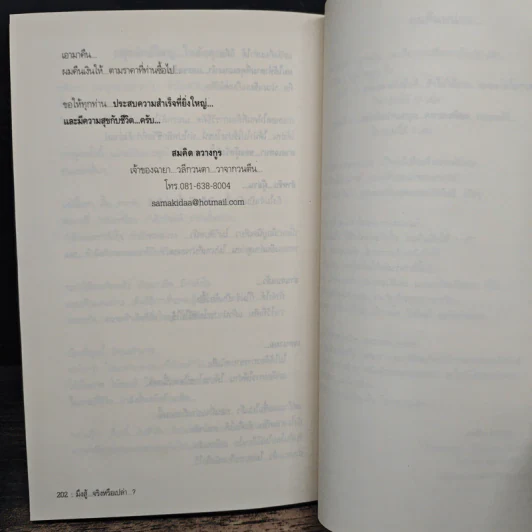 เอามาคืน...
ผมคืนเงินให้...ตามราคาที่ท่านซื้อไป
ขอให้ทุกท่าน...ประสบความสำเร็จที่ยิ่งใหญ่...
และมีความสุขกับชีวิต...ครับ...
สมคิด ลวางกูร
เจ้าของฉายา...วลีกวนตา...วาจากวนตีน...
โทร.081-638-8004
samakidaa@hotmail.com
202 : มึงสู้...จริงหรือเปล่า...?